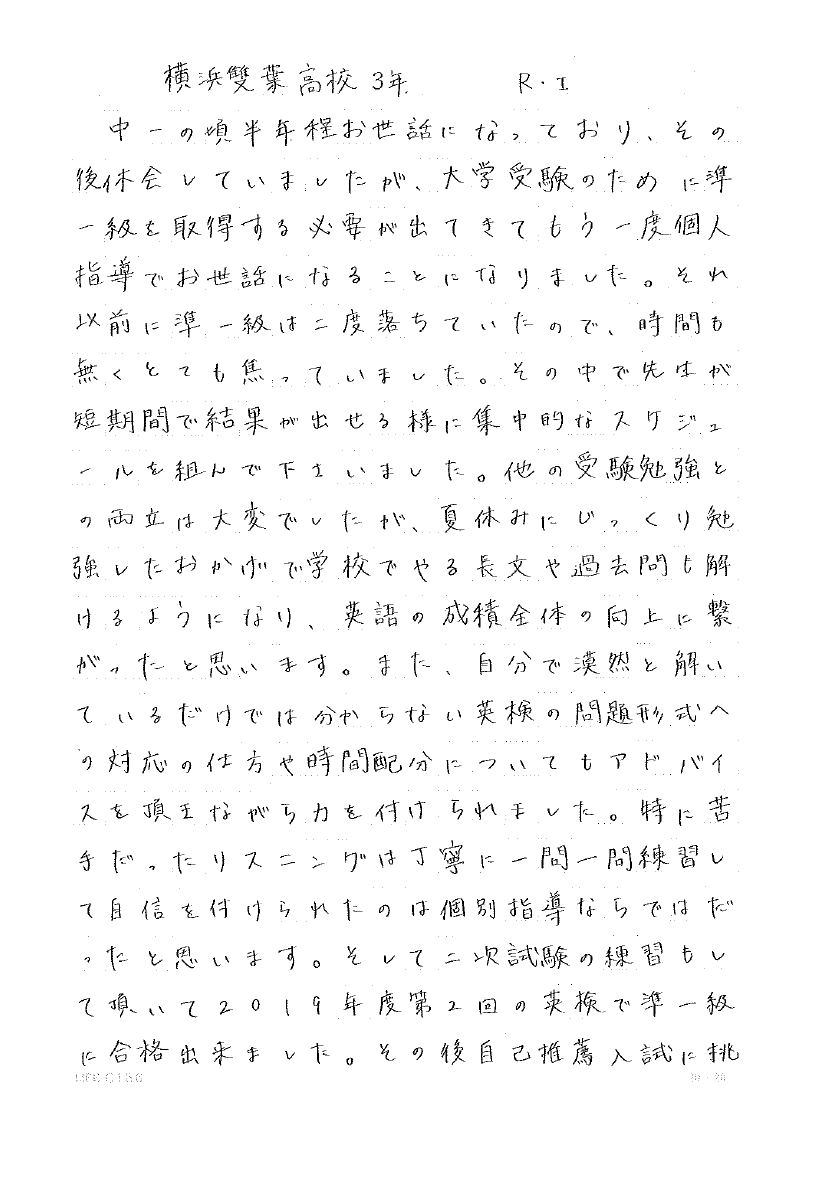 横浜雙葉高校3年 R・I
中一の頃半年程お世話になっており、その
後休会していましたが、大学受験のために準
一級を取得する必要が出てきてもう一度個人
指導でお世話になることになりました。それ
以前に準一級は二度落ちていたので、時間も
無くとても焦っていました。その中で先生が
短期間で結果が出せる様に集中的なスケジュ
ールを組んで下さいました。他の受験勉強と
の両立は大変でしたが、夏休みにじっくり勉
強したおかげで学校でやる長文や過去問も解
けるようになり、英語の成積全体の向上に繋
がったと思います。また、自分で漠然と解い
ているだけでは分からない英検の問題形式へ
の対応の仕方や時間配分についてもアドバイ
スを頂きながら力を付けられました。特に苦
手だったリスニングは丁寧に一問一問練習し
て自信を付けられたのは個別指導ならではだ
ったと思います。そして二次試験の練習もし
て頂いて2019年度第2回の英検で準一級
に合格出来ました。その後自己推薦入試に挑
LIFE C136